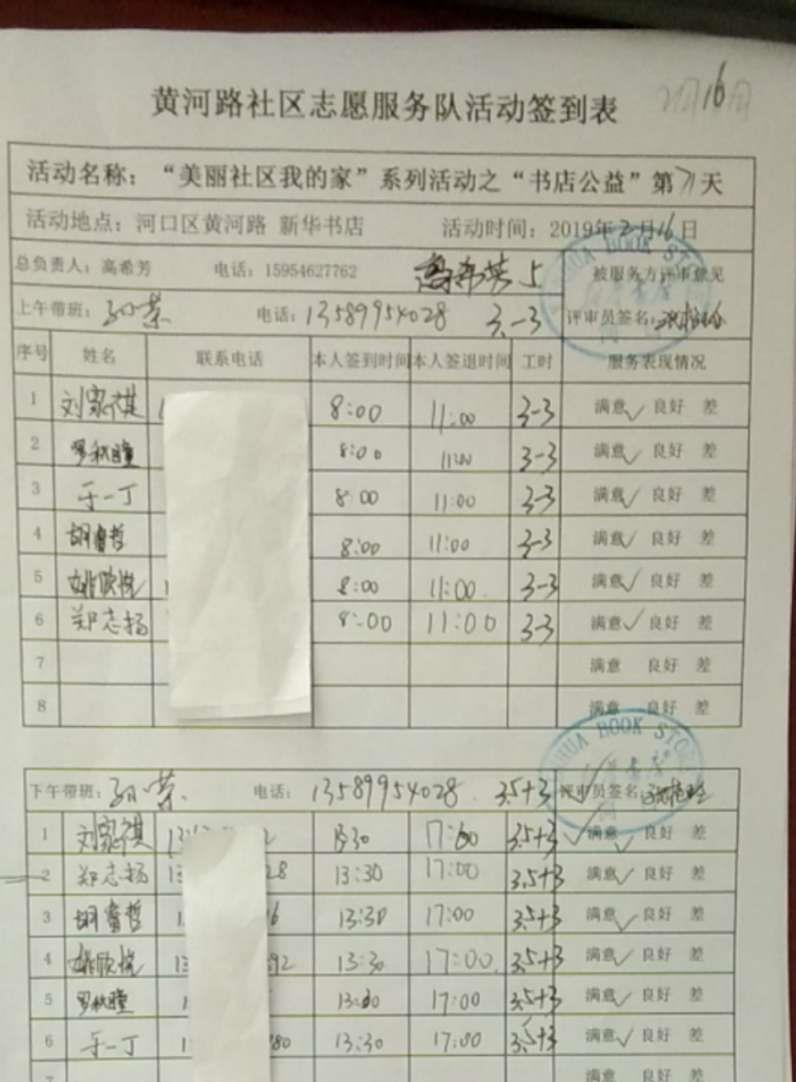 16
黄河路社区志愿服务队活动签到表
活动名称：“美丽社区我的家”系列活动之“书店公益”第 天
活动地点：河口区黄河路 新华书店 活动时间：2019年2月16日
总负责人：高希芳 电话：15954627762 高希芳 5 被服务方评审意见
上午带班： 电话：13589954028 3-3 评审员签名：
序号 姓名 联系电话 本人签到时间 本人签退时间 工时 服务表现情况
1 刘家祺 8:00 11:00 3-3 满意✓ 良好 差
2 罗秋瞳 8:00 11:00 3-3 满意✓ 良好 差
3 于一丁 8:00 11:00 3-3 满意✓ 良好 差
4 胡睿哲 8:00 11:00 3-3 满意✓ 良好 差
5 姚欣悦 8:00 11:00 3-3 满意✓ 良好 差
6 郑志扬 8:00 11:00 3-3 满意✓ 良好 差
7 满意 良好 差
8 满意 良好 差
XINHUA BOOK STORE
下午带班： 电话：13589954028 3.5+3 评审员签名：
1 刘家祺 13:30 17:00 3.5+3 满意✓ 良好 差
2 郑志扬 13 28 13:30 17:00 3.5+3 满意✓ 良好 差
3 胡睿哲 1 6 13:30 17:00 3.5+3 满意✓ 良好 差
4 姚欣悦 13 92 13:30 17:00 3.5+3 满意✓ 良好 差
5 罗秋瞳 1 13:30 17:00 3.5+3 满意✓ 良好 差
6 于一丁 1 80 13:30 17:00 3.5+3 满意✓ 良好 差
7 满意 良好 差